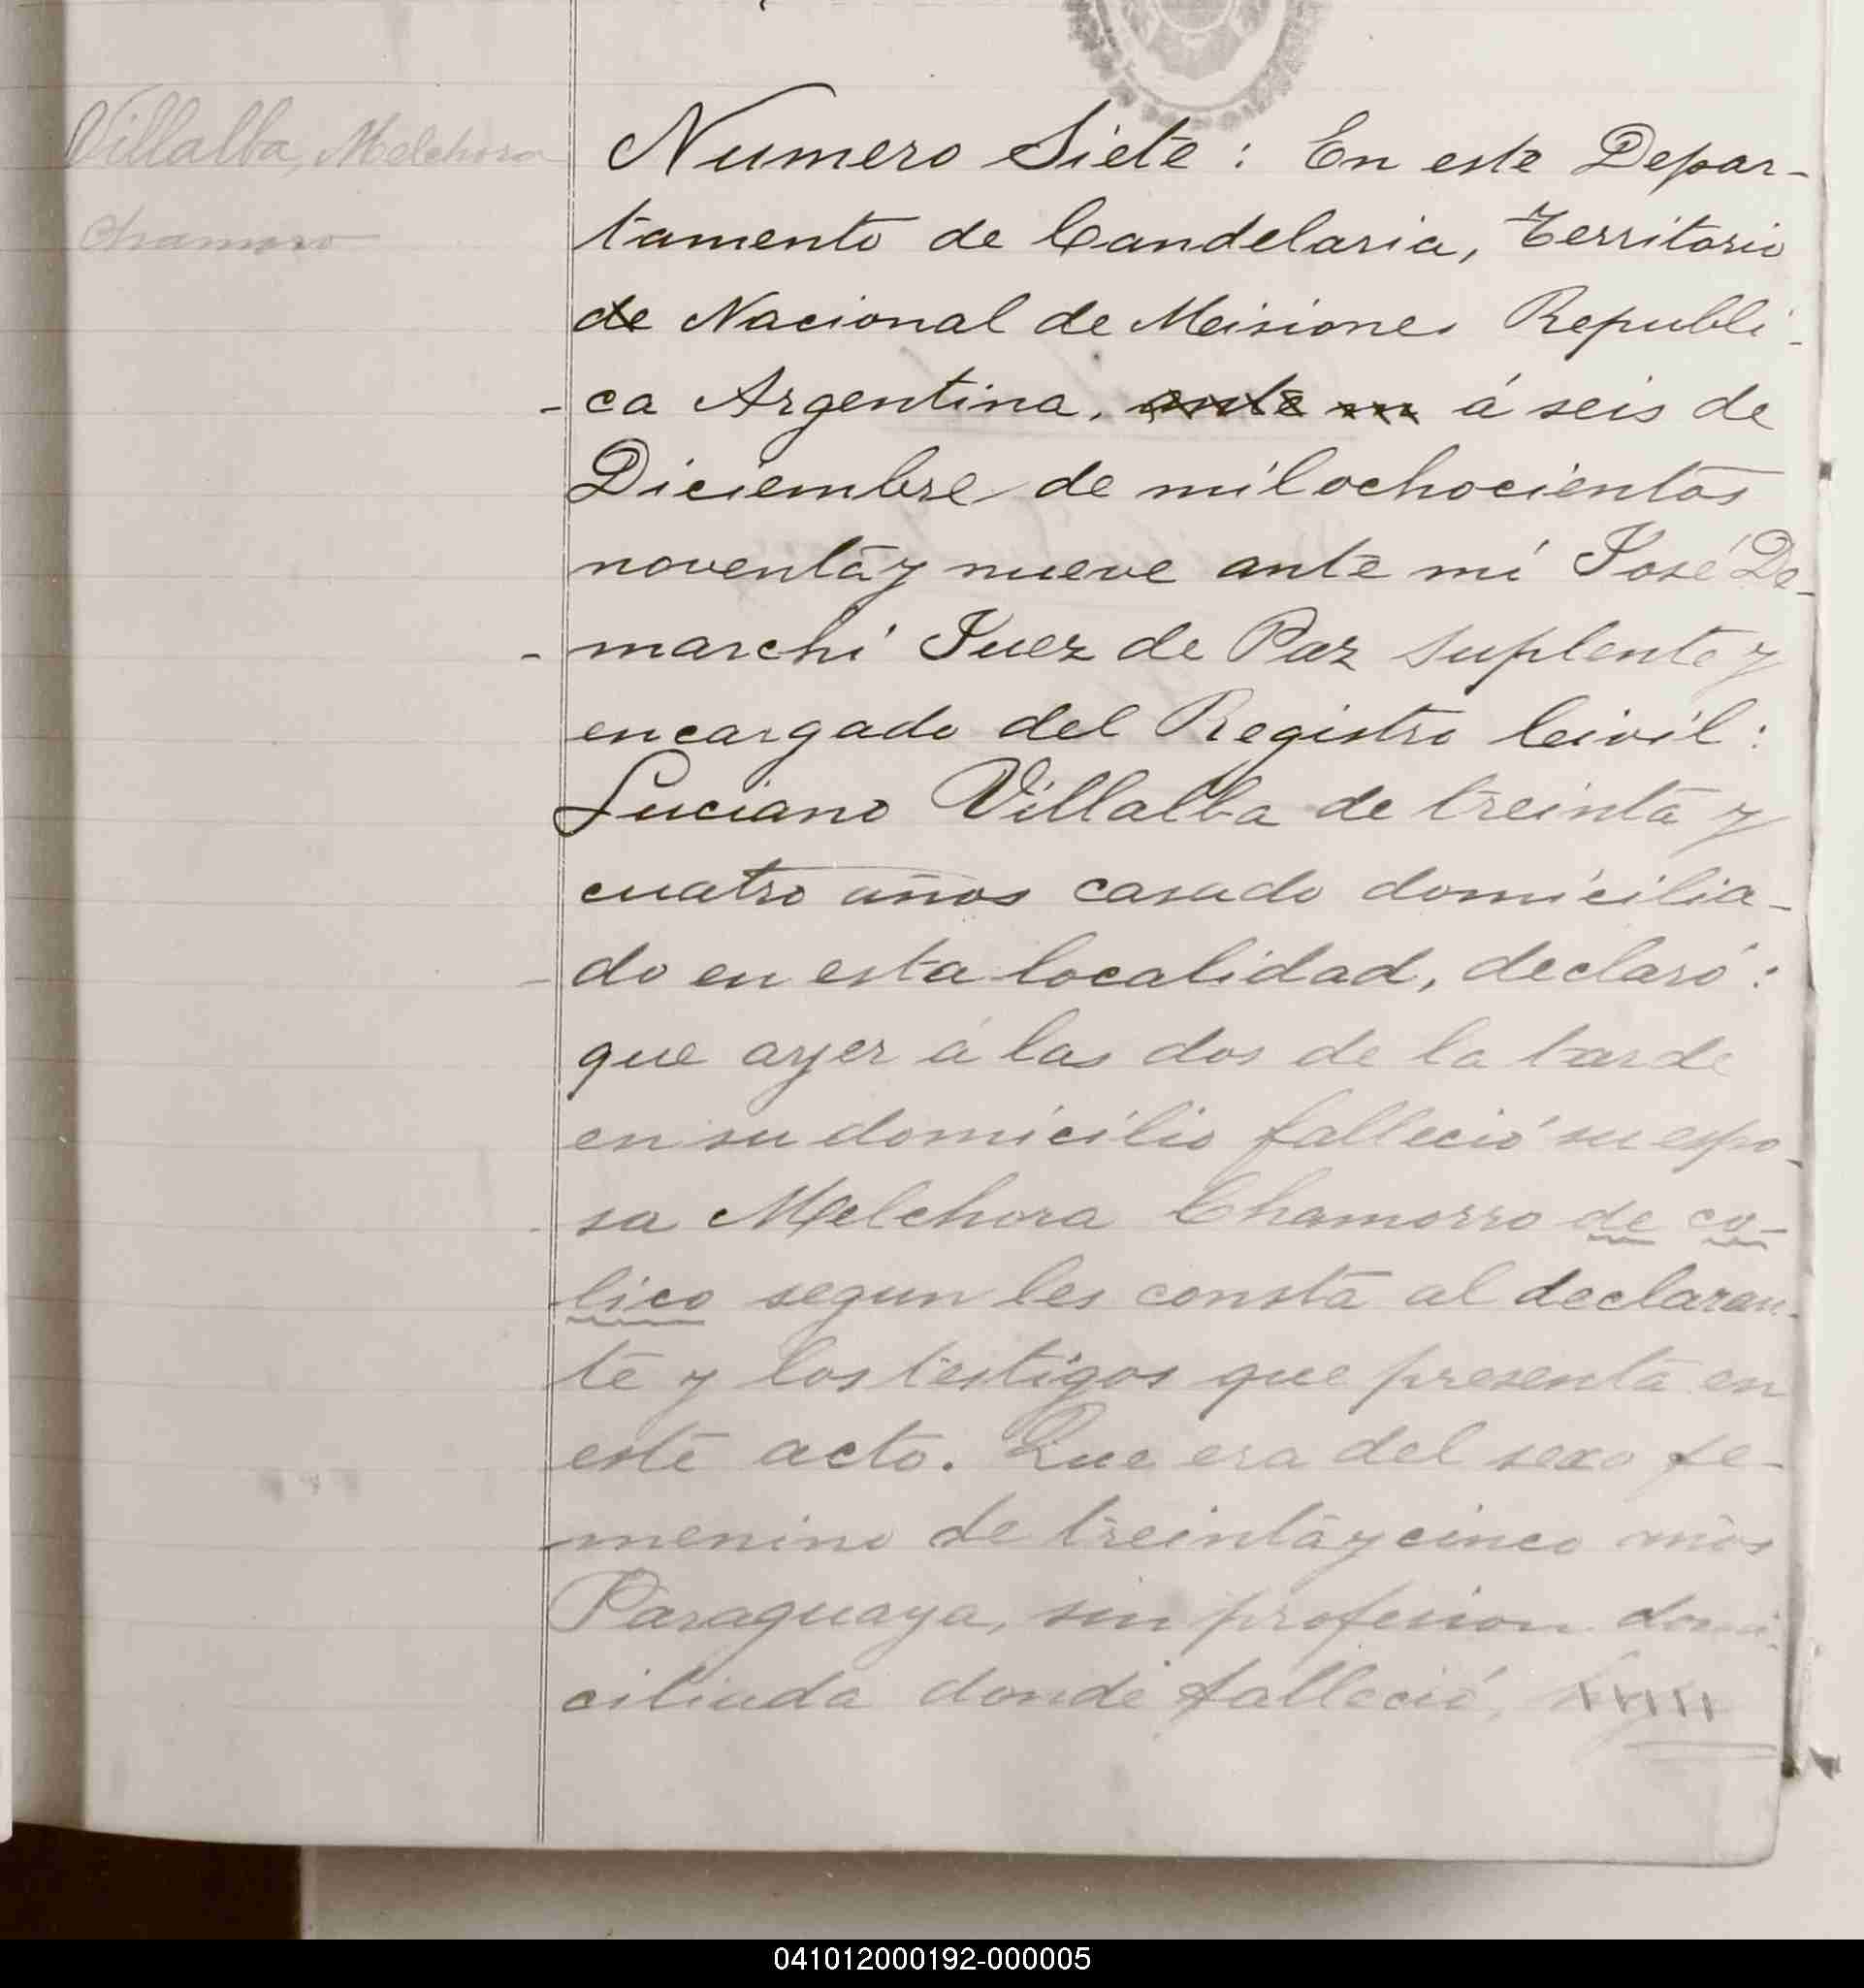 Villalba, Melchora
Chamorro
Numero Siete: En este Depar-
tamento de Candelaria, Territorio
de Nacional de Misiones Republi-
-ca Argentina, ante m á seis de
Diciembre de mil ochocientos
noventa y nueve ante mí José De-
-marchi Juez de Paz suplente y
encargado del Registro Civil:
Luciano Villalba de treinta y
cuatro años casado domicilia-
-do en esta localidad, declaró:
que ayer á las dos de la tarde
en su domicilio falleció su espo-
-sa Melchora Chamorro de co-
-lico segun les consta al declaran-
te y los testigos que presenta en
este acto. Que era del sexo fe-
menino de treinta y cinco años
Paraguaya, sin profesion domi-
ciliada donde falleció,
041012000192-000005